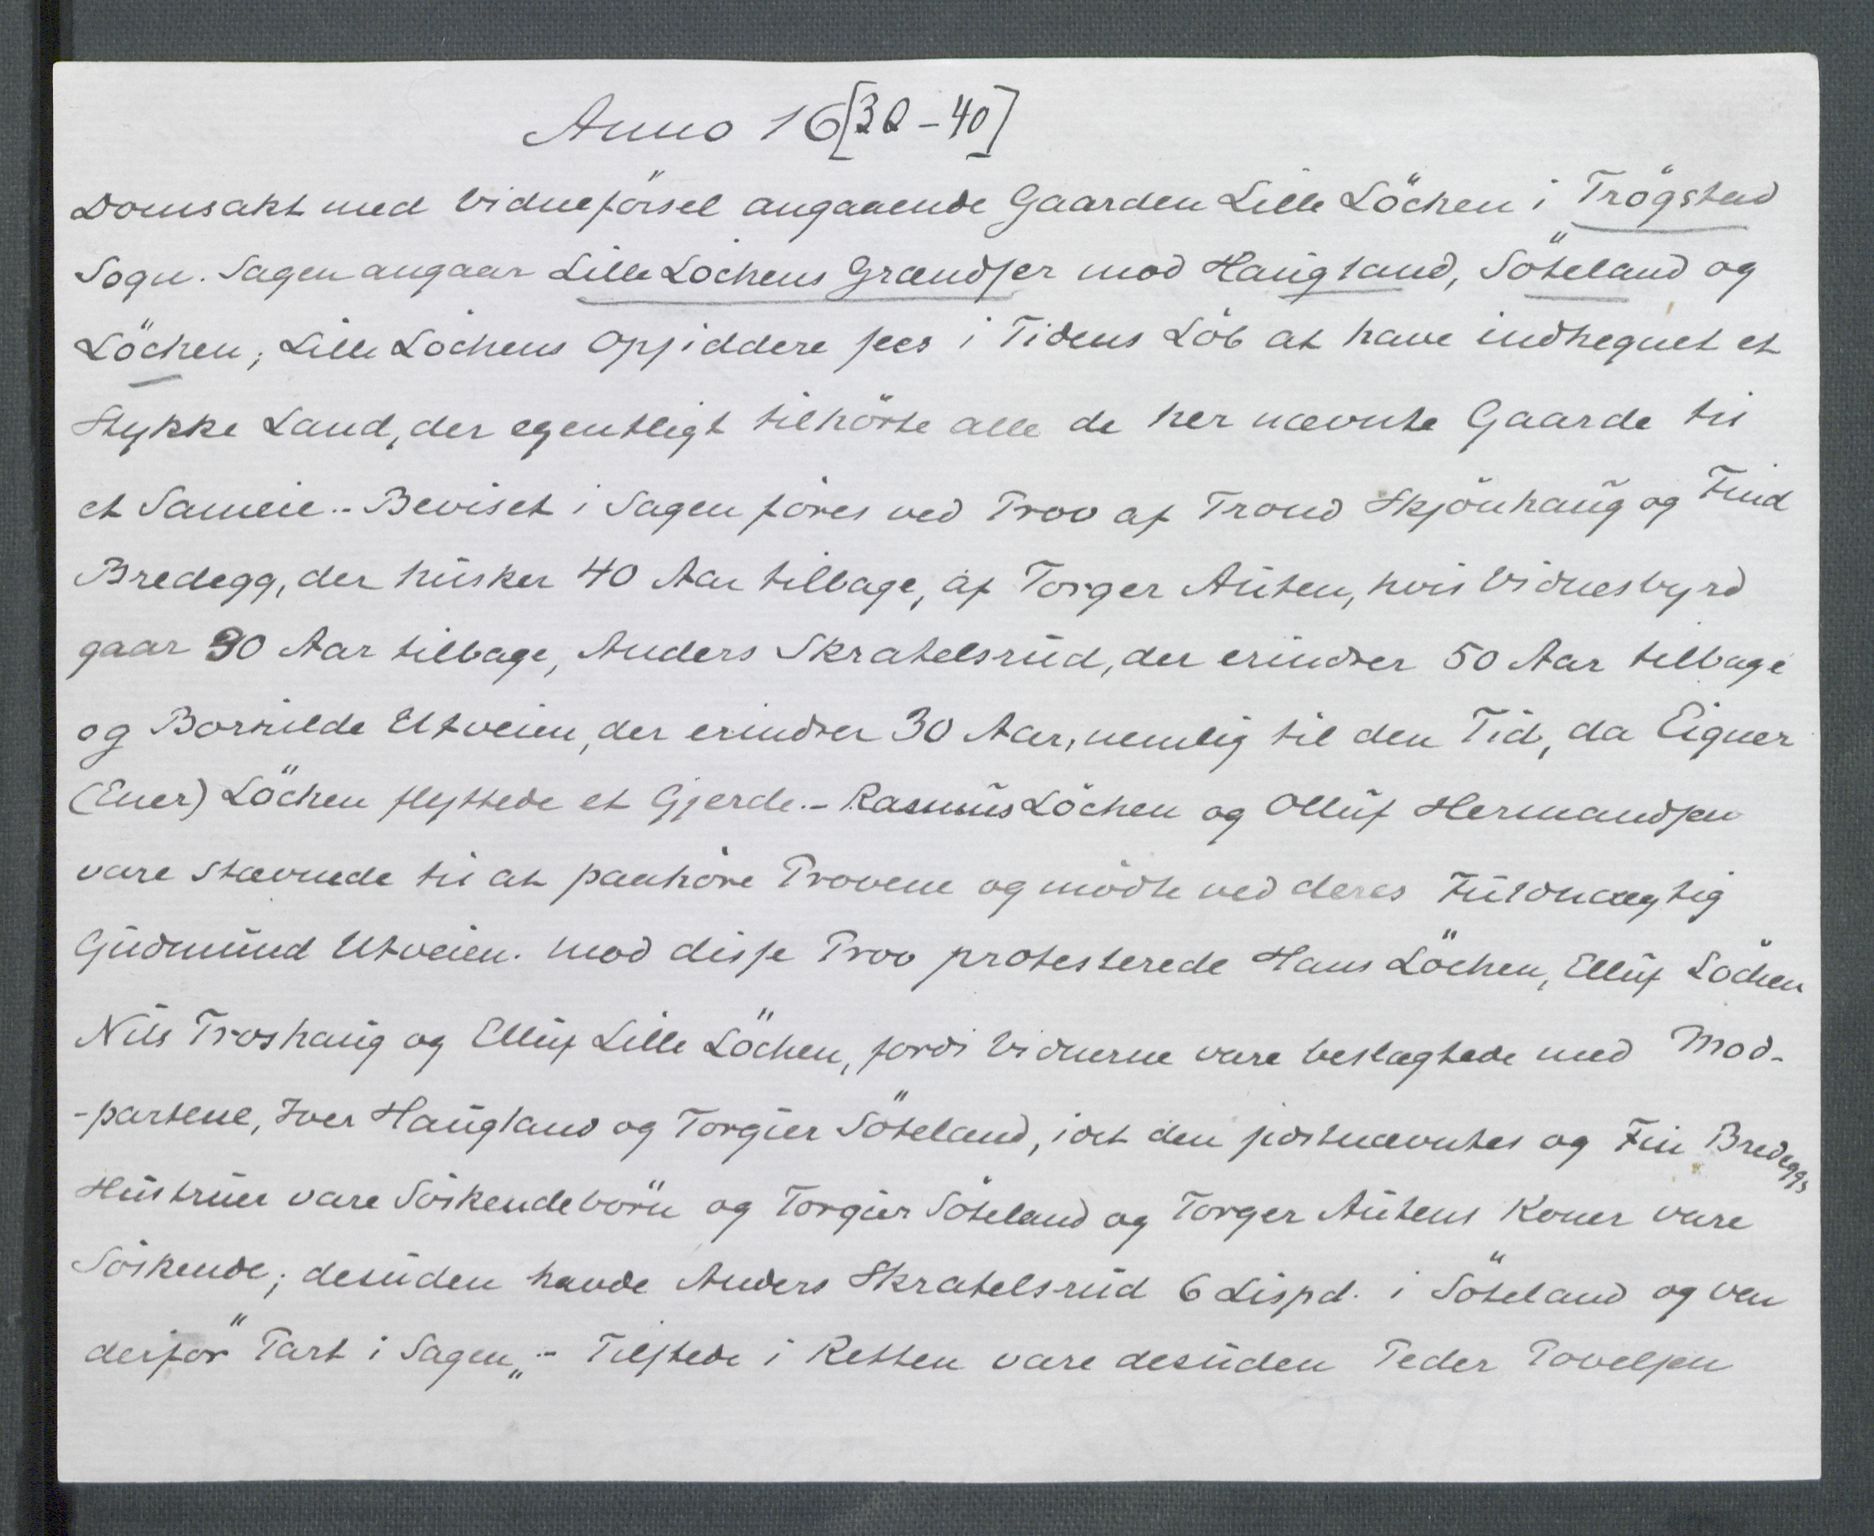 Anno 16[38-40]
Domsakt med Vidneförsel angaaende Gaarden Lille Löchen i Trögstad
Sogn. Sagen angaar Lille Löchens Grændser mod Haugland, Söteland og
Löchen; Lille Löchens Opsiddere sees i Tidens Löb at have indhegnet et
Stykke Land, der egentligt tilhörte alle de her nævnte Gaarde til
et Sameie.- Beviset i Sagen föres ved Prov af Trond Skjönhaug og Find
Bredegg, der husker 40 Aar tilbage, af Torger Auten, hvis Vidnesbyrd
gaar 30 Aar tilbage, Anders Skratelsrud, der erindrer 50 Aar tilbage
og Borhilde Utveien, der erindrer 30 Aar, nemlig til den Tid, da Eigner
(Ener) Löchen flyttede et Gjerde.- Rasmus Löchen og Olluf Hermandsen
vare stævnede til at paahöre Provene og mödte ved deres Fuldmægtig
Gudmund Utveien. Mod disse Prov protesterede Hans Löchen, Elluf Löchen
Nils Troshaug og Elluf Lille Löchen, fordi Vidnerne vare beslægtede med Mod-
-partene, Iver Haugland og Torgier Söteland, idet den sidstnævntes og Fin Bredeggs
Hustruer vare Söskendebörn og Torgier Söteland og Torger Autens Koner vare
Söskende; desuden havde Anders Skratelsrud 6 Lispd. i Söteland og var
derfor "Part i Sagen".- Tilstede i Retten vare desuden Peder Povelsen